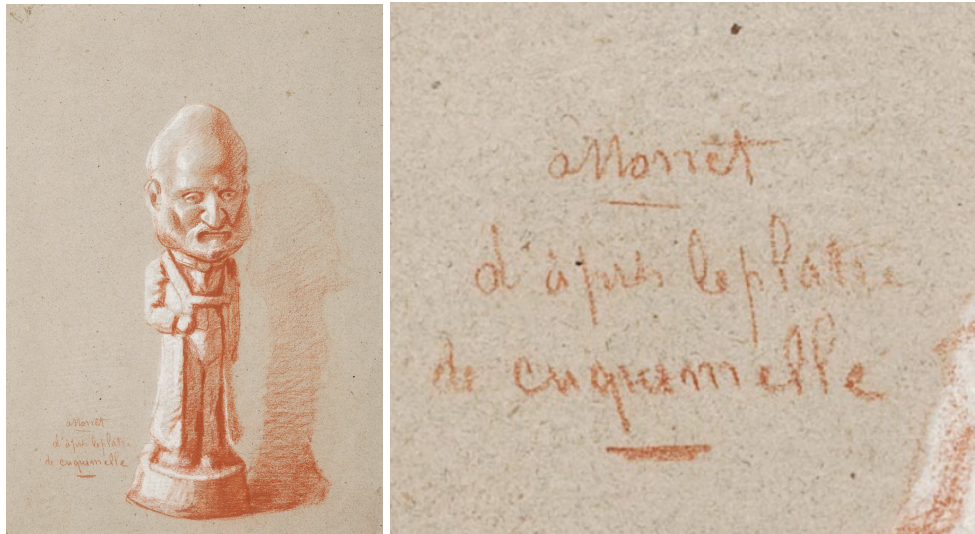 OMonet
d'après le platre
de cuquemelle
OMonet
d'après le platre
de cuquemelle